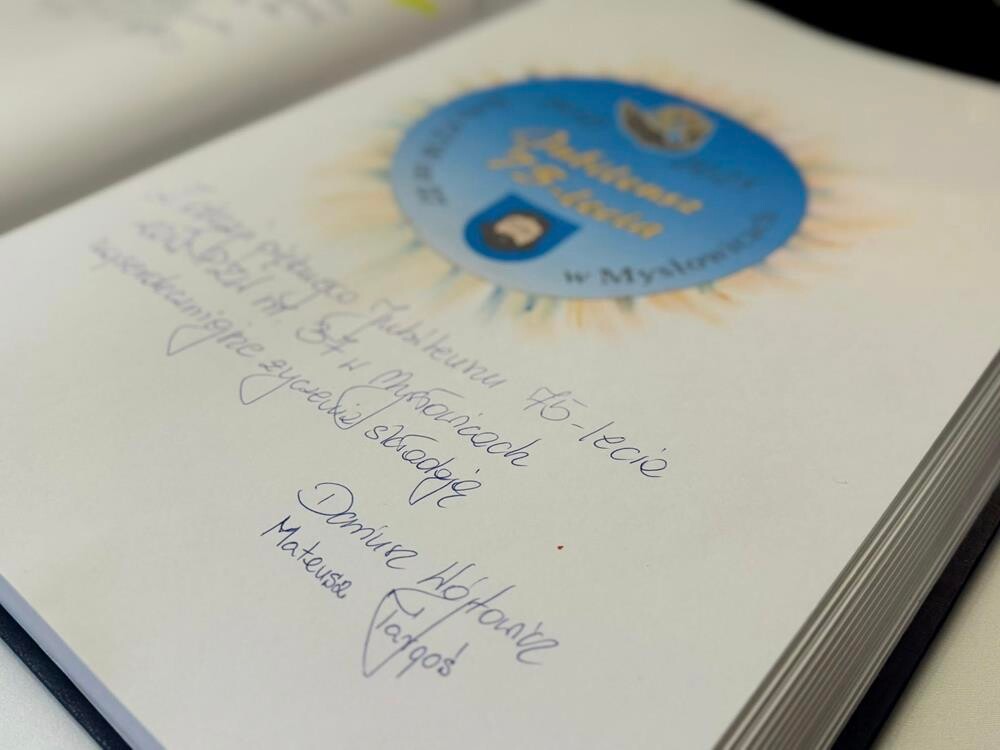 Jubileusz
75-lecia
w Mysłowicach
Z okazji pięknego Jubileuszu 75-lecia
nr 37 w Mysłowicach
życzenia składają
Dariusz Wójtowicz
Mateusz Targoś